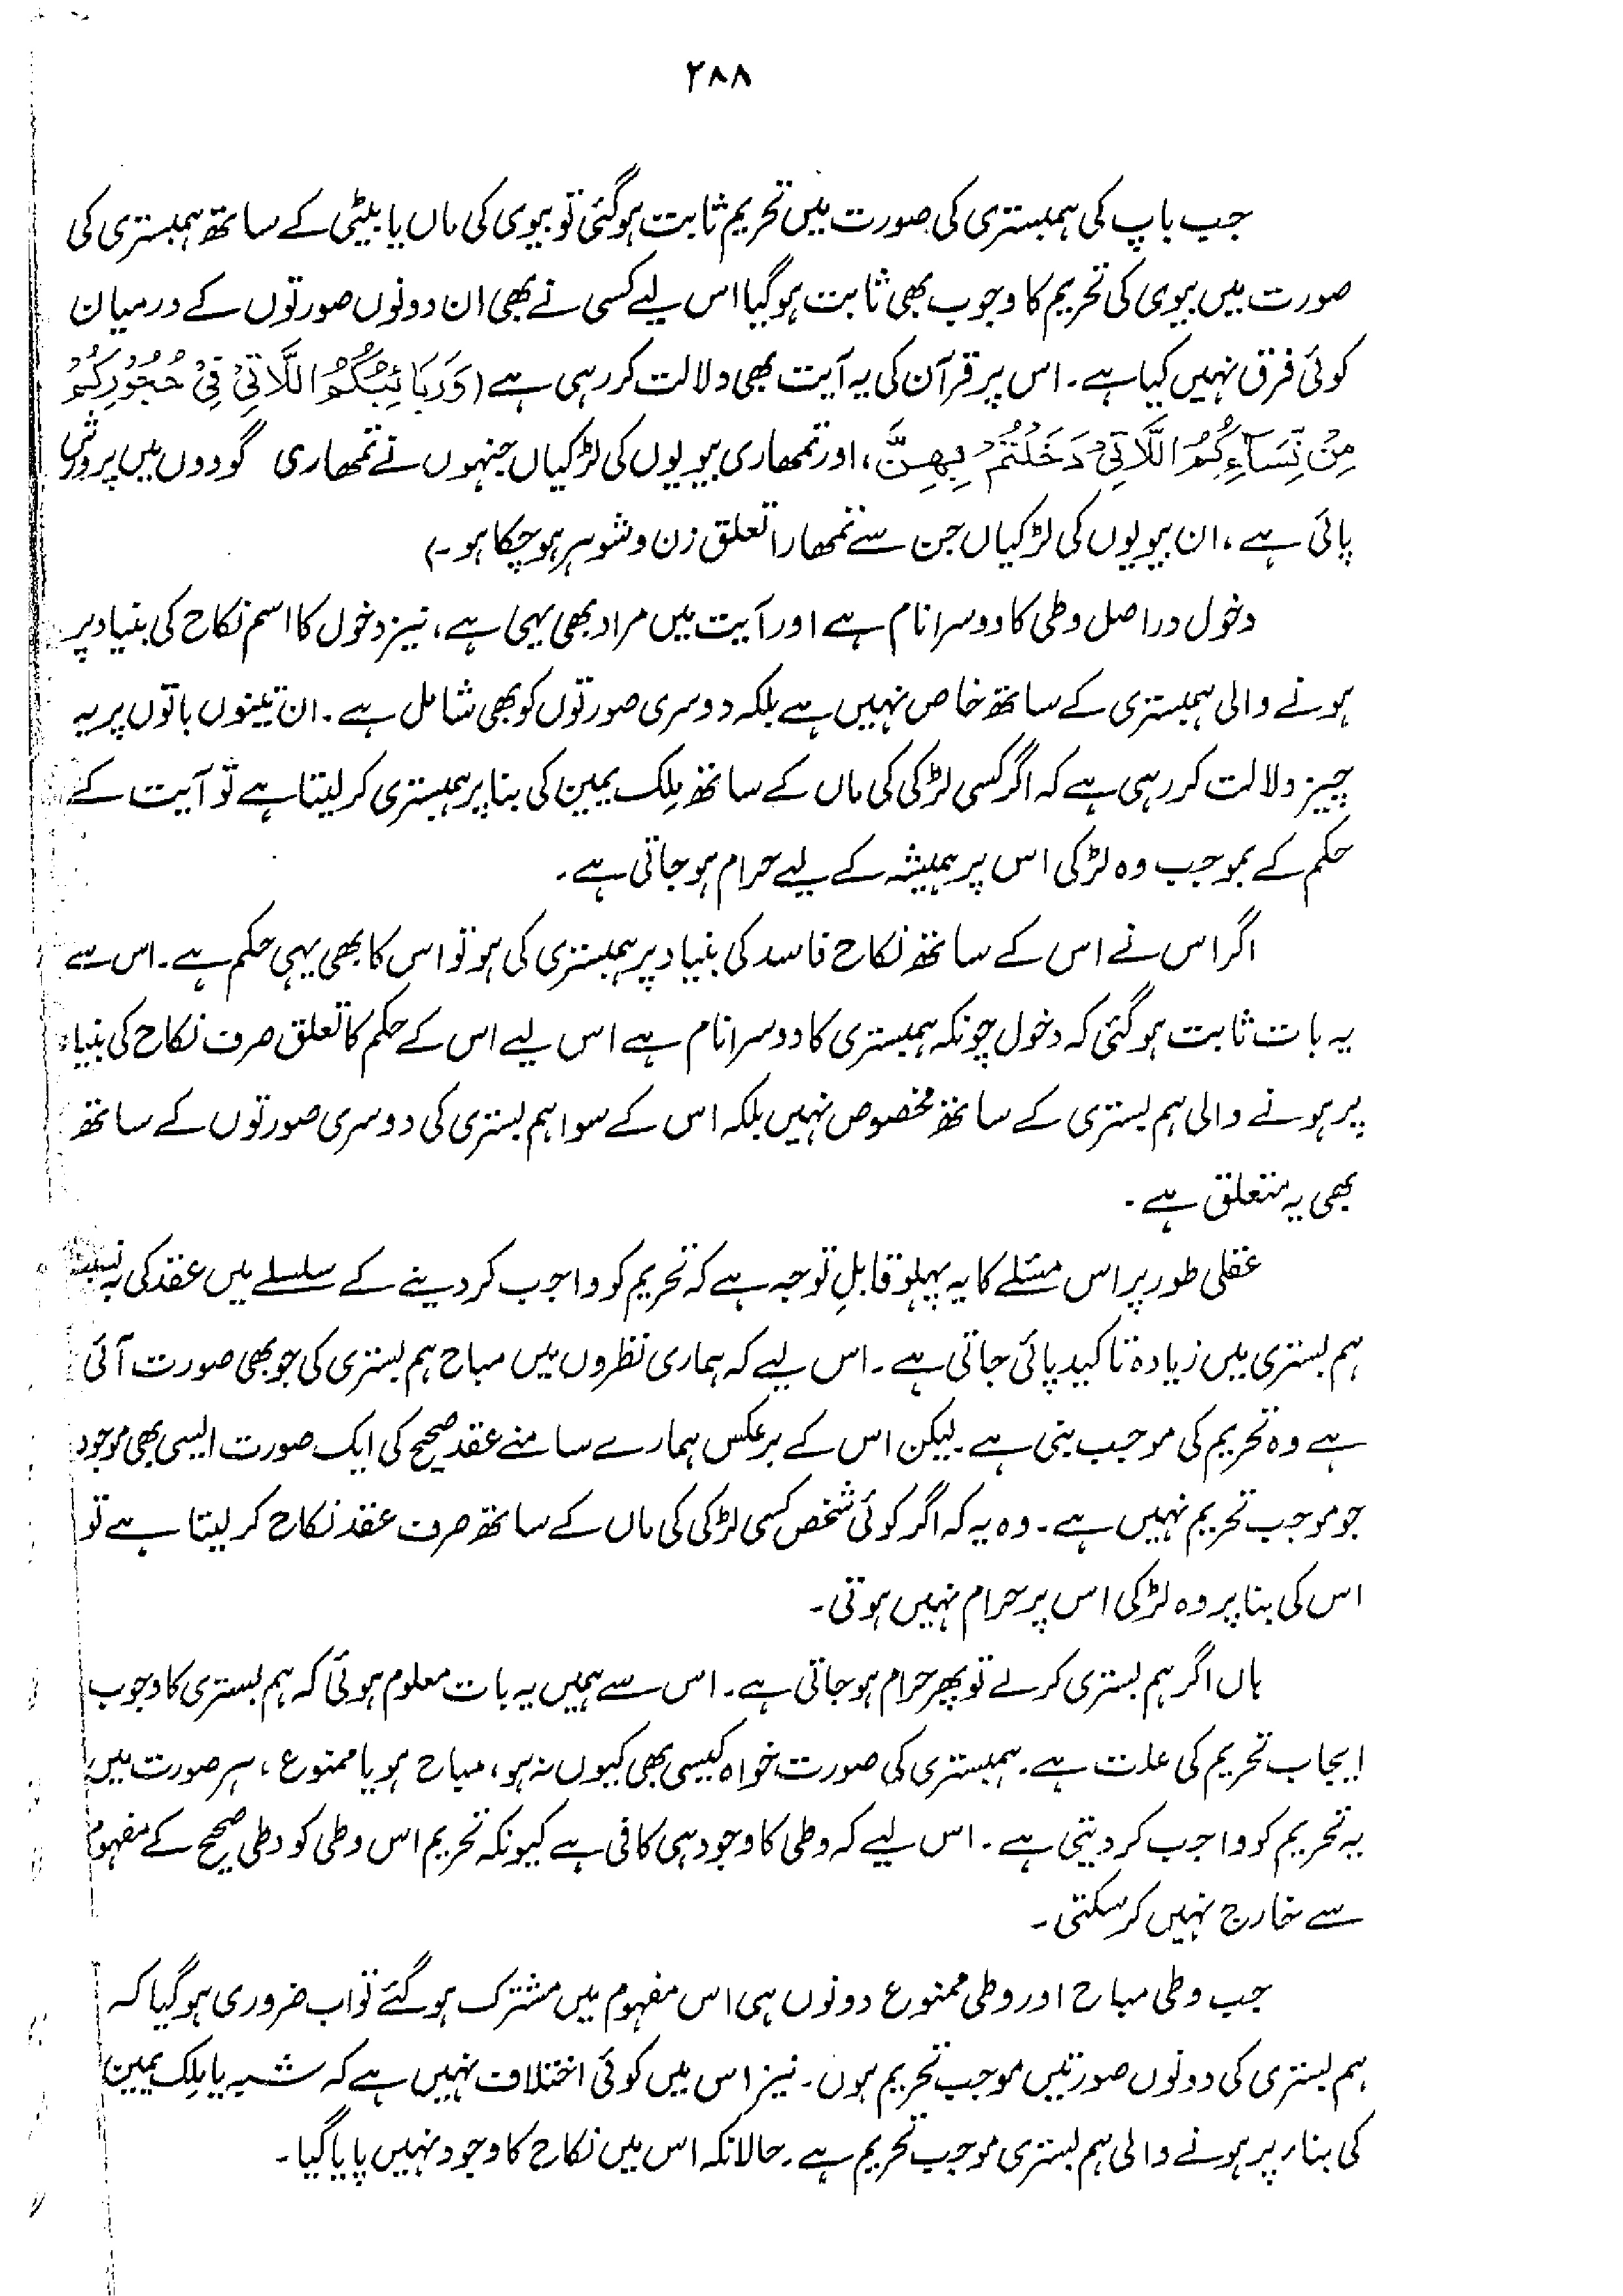 ۲۸۸
جب باپ کی ہمبستری کی صورت میں تحریم ثابت ہوگئی تو بیوی کی ماں یا بیٹی کے ساتھ ہمبستری کی
صورت میں بیوی کی تحریم کا وجوب بھی ثابت ہوگیا اس لیے کسی نے بھی ان دونوں صورتوں کے درمیان
کوئی فرق نہیں کیا ہے۔ اس پر قرآن کی یہ آیت بھی دلالت کررہی ہے (وَرَبَائِبُكُمُ اللَّاتِيْ فِيْ حُجُوْرِكُمْ
مِنْ نِّسَآءِكُمُ اللَّاتِيْ دَخَلْتُمْ بِهِنَّ، اور تمھاری بیویوں کی لڑکیاں جنہوں نے تمھاری گودوں میں پرورش
پائی ہے، ان بیویوں کی لڑکیاں جن سے تمھارا تعلق زن وشوہر ہوچکا ہو۔)
دخول دراصل وطی کا دوسرا نام ہے اور آیت میں مراد بھی یہی ہے، نیز دخول کا اسم نکاح کی بنیاد پر
ہونے والی ہمبستری کے ساتھ خاص نہیں ہے بلکہ دوسری صورتوں کو بھی شامل ہے۔ ان تینوں باتوں پر یہ
چیز دلالت کررہی ہے کہ اگر کسی لڑکی کی ماں کے ساتھ مِلک یمین کی بنا پر ہمبستری کرلیتا ہے تو آیت کے
حکم کے بموجب وہ لڑکی اس پر ہمیشہ کے لیے حرام ہوجاتی ہے۔
اگر اس نے اس کے ساتھ نکاح فاسد کی بنیاد پر ہمبستری کی ہو تو اس کا بھی یہی حکم ہے۔ اس سے
یہ بات ثابت ہوگئی کہ دخول چونکہ ہمبستری کا دوسرا نام ہے اس لیے اس کے حکم کا تعلق صرف نکاح کی بنیاد
پر ہونے والی ہم بستری کے ساتھ مخصوص نہیں بلکہ اس کے سوا ہم بستری کی دوسری صورتوں کے ساتھ
بھی یہ متعلق ہے۔
عقلی طور پر اس مسئلے کا یہ پہلو قابلِ توجہ ہے کہ تحریم کو واجب کردینے کے سلسلے میں عقد کی بہ نسبت
ہم بستری میں زیادہ تاکید پائی جاتی ہے۔ اس لیے کہ ہماری نظروں میں مباح ہم بستری کی جو بھی صورت آئی
ہے وہ تحریم کی موجب بنی ہے۔ لیکن اس کے برعکس ہمارے سامنے عقد صحیح کی ایک صورت ایسی بھی موجود
جو موجب تحریم نہیں ہے۔ وہ یہ کہ اگر کوئی شخص کسی لڑکی کی ماں کے ساتھ صرف عقد نکاح کرلیتا ہے تو
اس کی بنا پر وہ لڑکی اس پر حرام نہیں ہوتی۔
ہاں اگر ہم بستری کرلے تو پھر حرام ہوجاتی ہے۔ اس سے ہمیں یہ بات معلوم ہوئی کہ ہم بستری کا وجوب
ایجاب تحریم کی علت ہے۔ ہمبستری کی صورت خواہ کیسی بھی کیوں نہ ہو، مباح ہو یا ممنوع، ہر صورت میں
یہ تحریم کو واجب کردیتی ہے۔ اس لیے کہ وطی کا وجود ہی کافی ہے کیونکہ تحریم اس وطی کو وطی صحیح کے مفہوم
سے خارج نہیں کرسکتی۔
جب وطی مباح اور وطی ممنوع دونوں ہی اس مفہوم میں مشترک ہوگئے تو اب ضروری ہوگیا کہ
ہم بستری کی دونوں صورتیں موجب تحریم ہوں۔ نیز اس میں کوئی اختلاف نہیں ہے کہ شبہ یا مِلک یمین
کی بناء پر ہونے والی ہم بستری موجب تحریم ہے۔ حالانکہ اس میں نکاح کا وجود نہیں پایا گیا۔